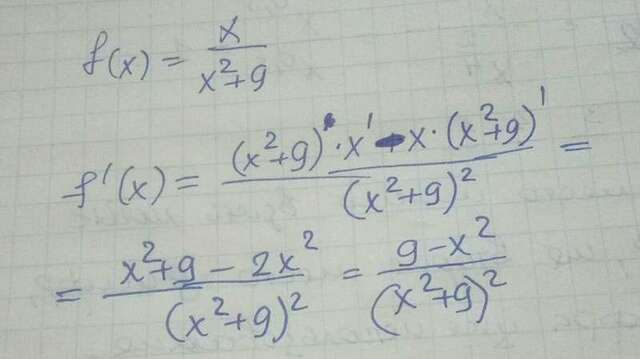 f(x) = x / (x²+9)
f'(x) = ((x²+9)·x' - x·(x²+9)') / (x²+9)² =
= (x²+9 - 2x²) / (x²+9)² = (9-x²) / (x²+9)²